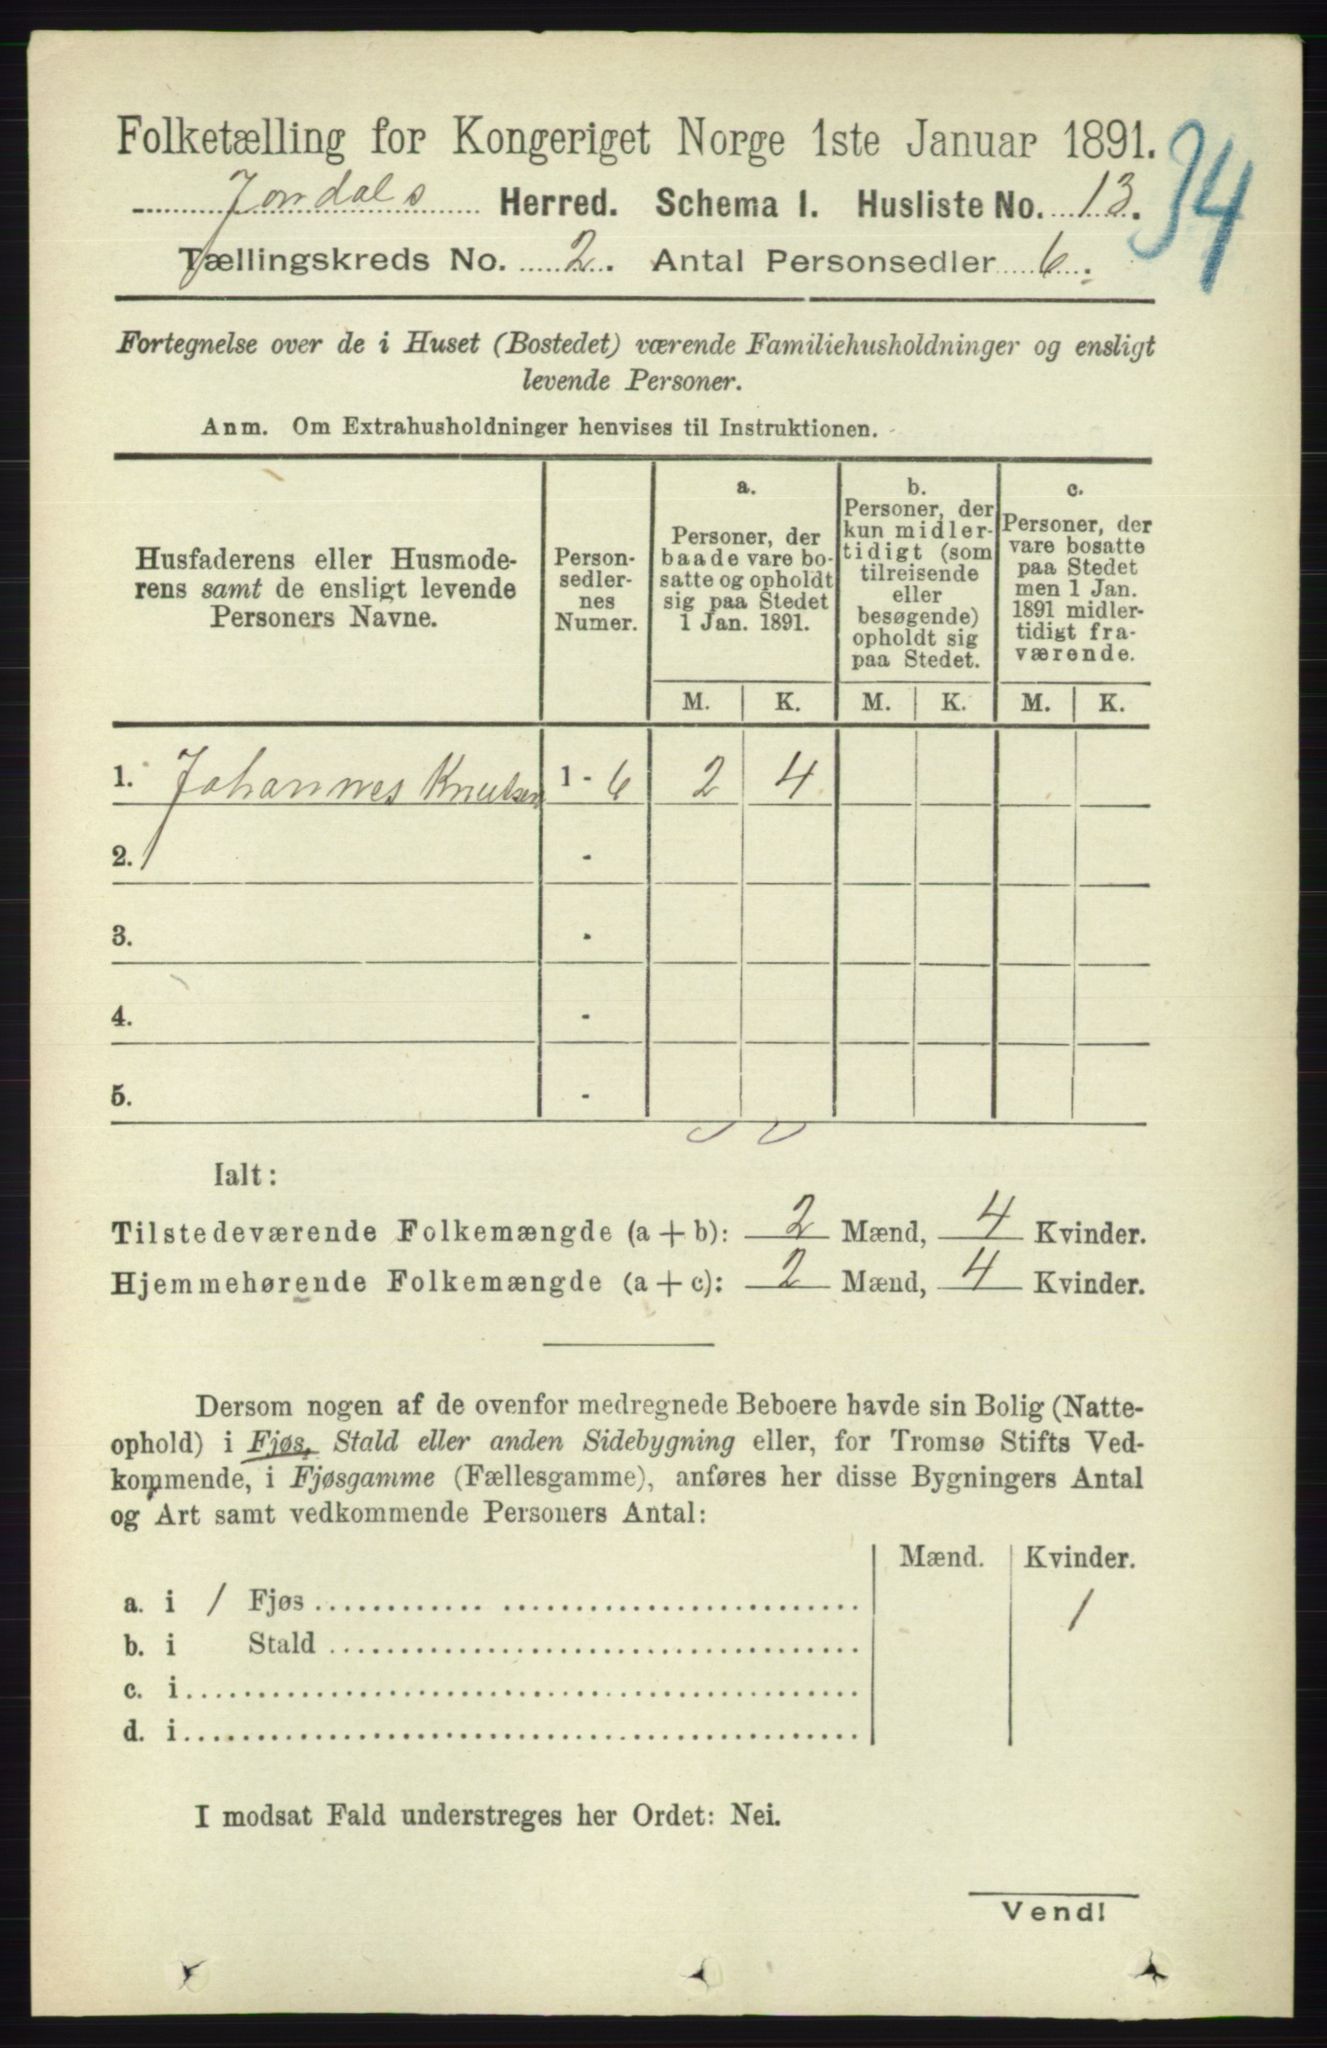 Folketælling for Kongeriget Norge 1ste Januar 1891.
34
Jondals Herred. Schema I. Husliste No. 13.
Tællingskreds No. 2. Antal Personsedler 6.
Fortegnelse over de i Huset (Bostedet) værende Familiehusholdninger og ensligt
levende Personer.
Anm. Om Extrahusholdninger henvises til Instruktionen.
Husfaderens eller Husmode-
rens samt de ensligt levende
Personers Navne.
Person-
sedler-
nes
Numer.
a.
Personer, der
baade vare bo-
satte og opholdt
sig paa Stedet
1 Jan. 1891.
b.
Personer, der
kun midler-
tidigt (som
tilreisende
eller
besøgende)
opholdt sig
paa Stedet.
c.
Personer, der
vare bosatte
paa Stedet
men 1 Jan.
1891 midler-
tidigt fra-
værende.
M. K. M. K. M. K.
1. Johannes Knutsen 1 - 6 2 4
2. -
3. -
4. -
5. -
Ialt:
Tilstedeværende Folkemængde (a + b): 2 Mænd, 4 Kvinder.
Hjemmehørende Folkemængde (a + c): 2 Mænd, 4 Kvinder.
Dersom nogen af de ovenfor medregnede Beboere havde sin Bolig (Natte-
ophold) i Fjøs, Stald eller anden Sidebygning eller, for Tromsø Stifts Ved-
kommende, i Fjøsgamme (Fællesgamme), anføres her disse Bygningers Antal
og Art samt vedkommende Personers Antal:
Mænd. Kvinder.
a. i 1 Fjøs ........................................ 1
b. i Stald ........................................
c. i........................................
d. i........................................
I modsat Fald understreges her Ordet: Nei.
Vend!